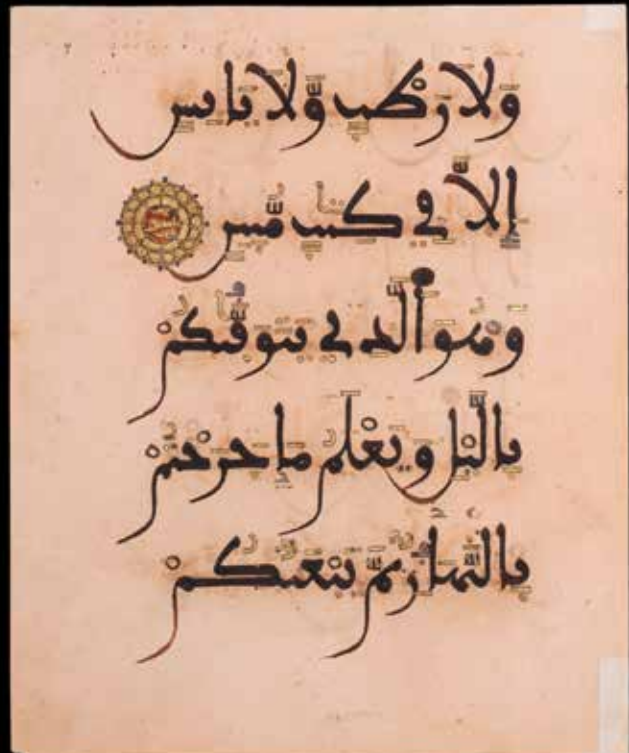 ولا رطب ولا يابس
إلا في كتب مبين
وهو الذي يتوفيكم
باليل ويعلم ما جرحتم
بالنهار ثم يبعثكم